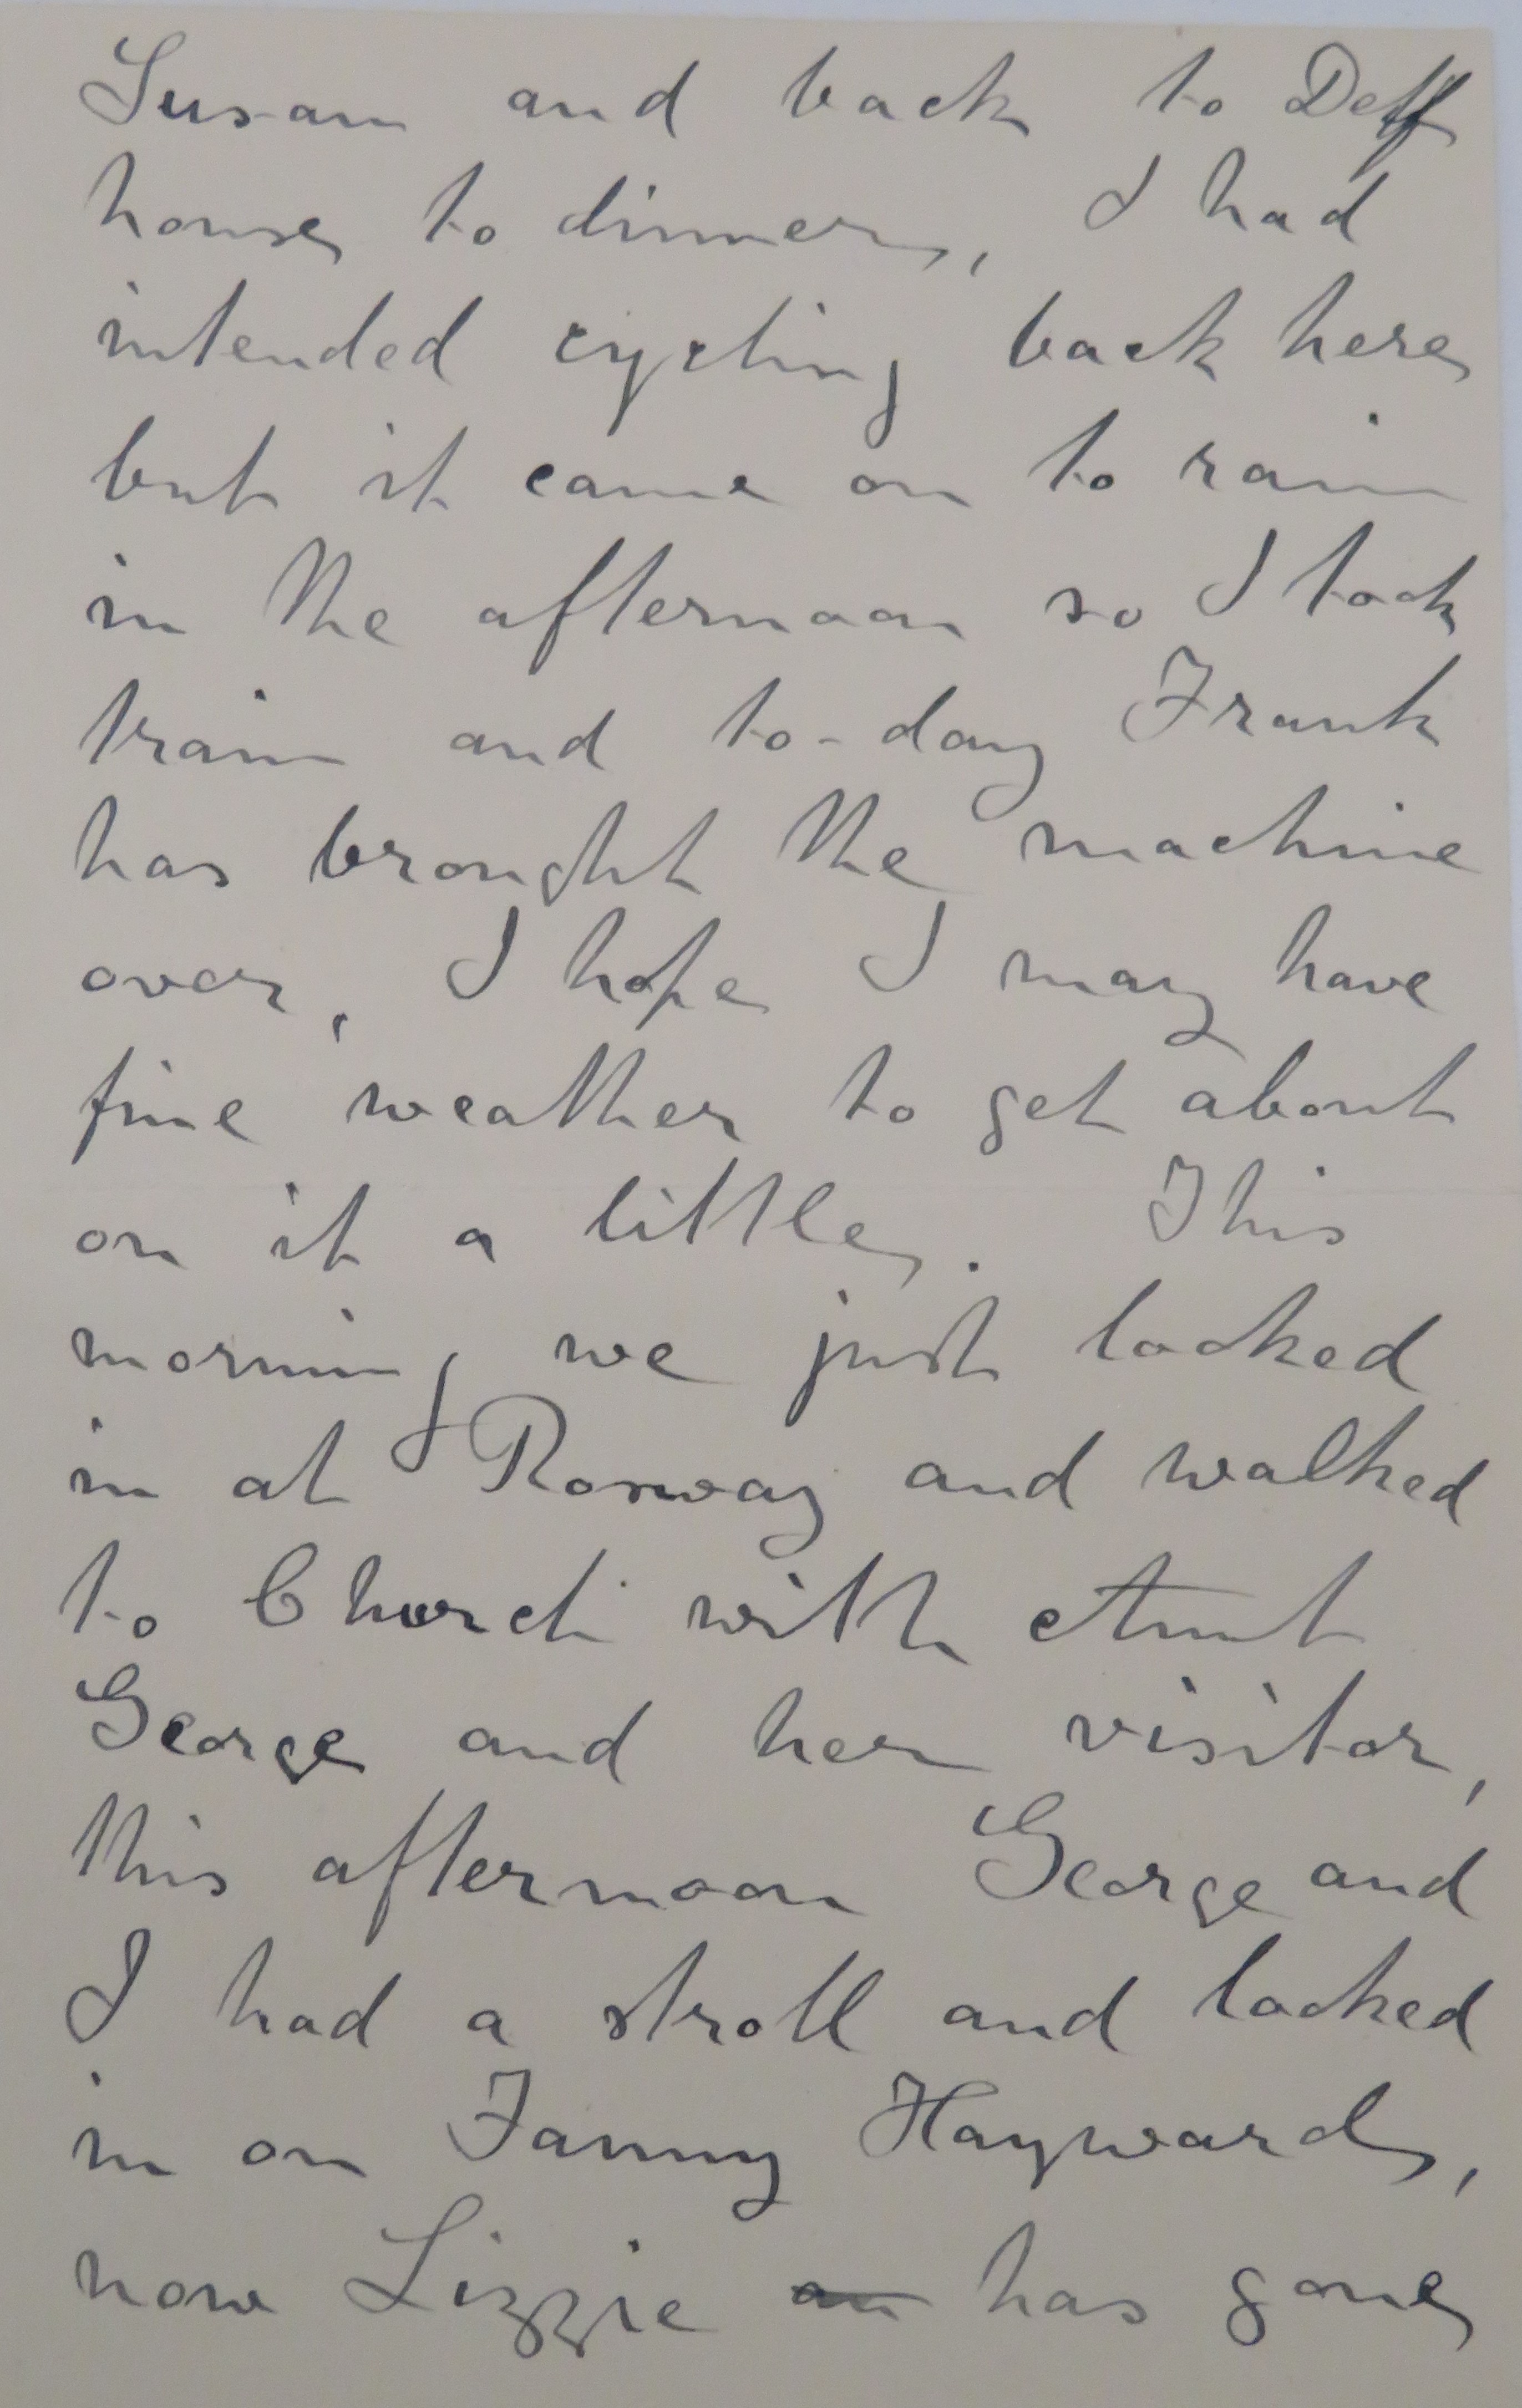 Susan and back to Deff
house to dinner, I had
intended cycling back here
but it came on to rain
in the afternoon so I took
train and to-day Frank
has brought the machine
over, I hope I may have
fine weather to get about
on it a little. This
morning we just looked
in at Rosway and walked
to Church with Aunt
George and her visitor,
this afternoon George and
I had a stroll and looked
in on Fanny Hayward,
now Lizzie has gone